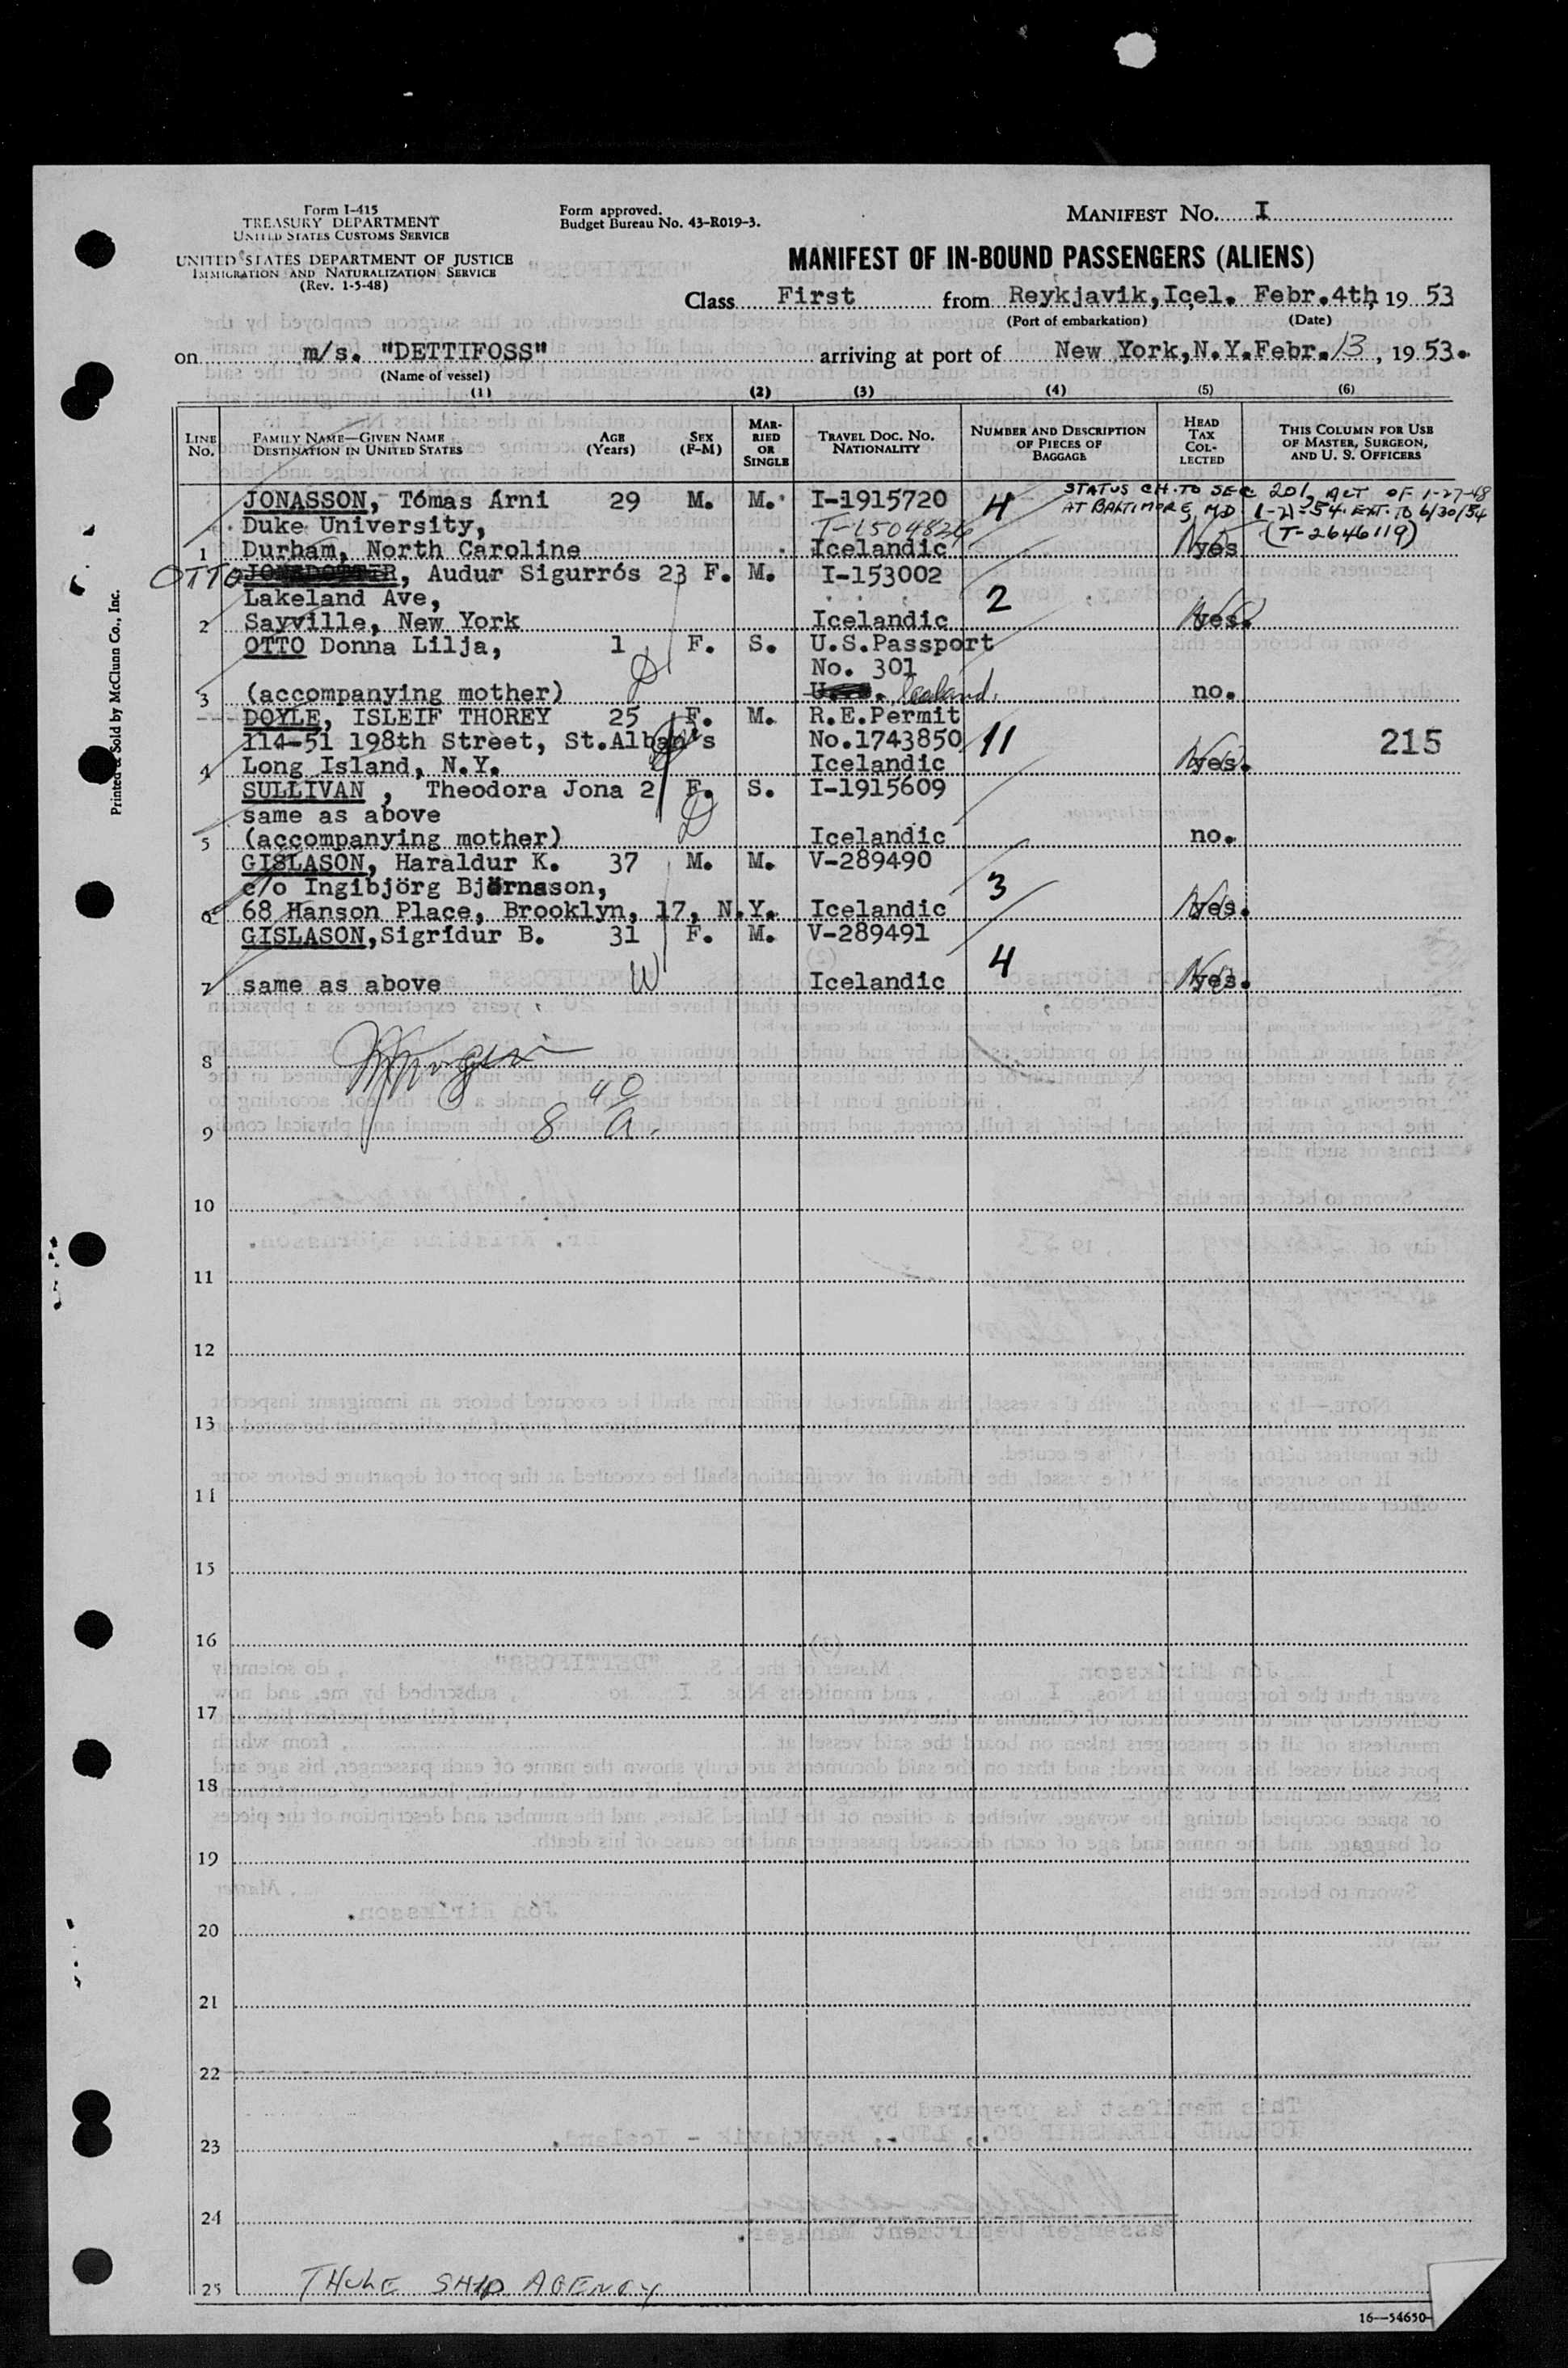 Form I-415
TREASURY DEPARTMENT
UNITED STATES CUSTOMS SERVICE
UNITED STATES DEPARTMENT OF JUSTICE
IMMIGRATION AND NATURALIZATION SERVICE
(Rev. 1-5-48)
Form approved.
Budget Bureau No. 43-R019-3.
MANIFEST NO. I
MANIFEST OF IN-BOUND PASSENGERS (ALIENS)
Class First from Reykjavik, Icel. Febr. 4th, 19 53
(Port of embarkation) (Date)
on m/s. "DETTIFOSS" arriving at port of New York, N.Y. Febr. 13, 19 53.
(Name of vessel)
(1) (2) (3) (4) (5) (6)
LINE No. FAMILY NAME—GIVEN NAME DESTINATION IN UNITED STATES AGE (Years) SEX (F-M) MARRIED OR SINGLE TRAVEL DOC. NO. NATIONALITY NUMBER AND DESCRIPTION OF PIECES OF BAGGAGE HEAD TAX COLLECTED THIS COLUMN FOR USE OF MASTER, SURGEON, AND U. S. OFFICERS
JONASSON, Tómas Árni 29 M. M. I-1915720 4 STATUS CH. TO SEC 201, ACT OF 1-27-48
Duke University, T-1504826 AT BALTIMORE, MD 1-21-54 EXT. TO 6/30/54
1 Durham, North Caroline Icelandic yes (T-2646119)
OTTO, Audur Sigurrós 23 F. M. I-153002
Lakeland Ave, 2
2 Sayville, New York Icelandic yes.
OTTO Donna Lilja, 1 F. S. U.S.Passport
No. 301
3 (accompanying mother) Iceland. no.
DOYLE, ISLEIF THOREY 25 F. M. R.E.Permit
114-51 198th Street, St.Alban's No.1743850 11 215
4 Long Island, N.Y. Icelandic yes.
SULLIVAN , Theodora Jona 2 F. S. I-1915609
same as above
5 (accompanying mother) Icelandic no.
GISLASON, Haraldur K. 37 M. M. V-289490
c/o Ingibjörg Björnsson, 3
6 68 Hanson Place, Brooklyn, 17, N.Y. Icelandic yes.
GISLASON, Sigrídur B. 31 F. M. V-289491
4
7 same as above W Icelandic yes.
8
8 40 a.
9
10
11
12
13
14
15
16
17
18
19
20
21
22
23
24
25 THULE SHIP AGENCY
16—54650-
Printed & Sold by McClunn Co., Inc.